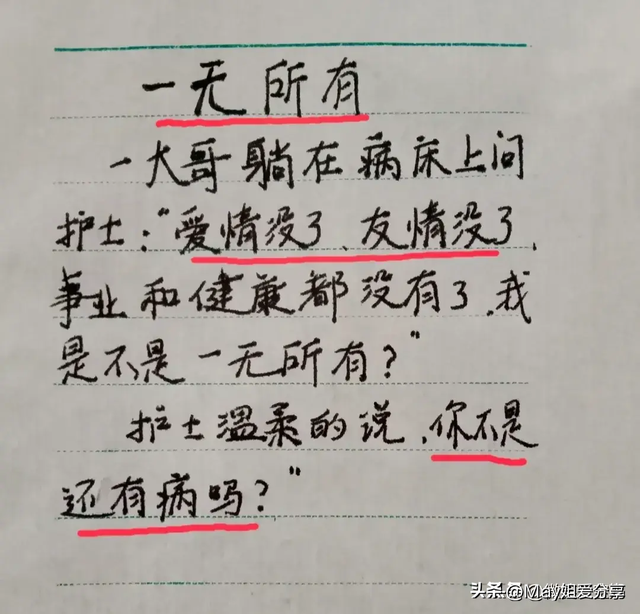 一无所有
一大哥躺在病床上问
护士:“爱情没了、友情没了、
事业和健康都没有了.我
是不是一无所有?”
护士温柔的说.你不是
还有病吗?”
头条 @May姐爱分享